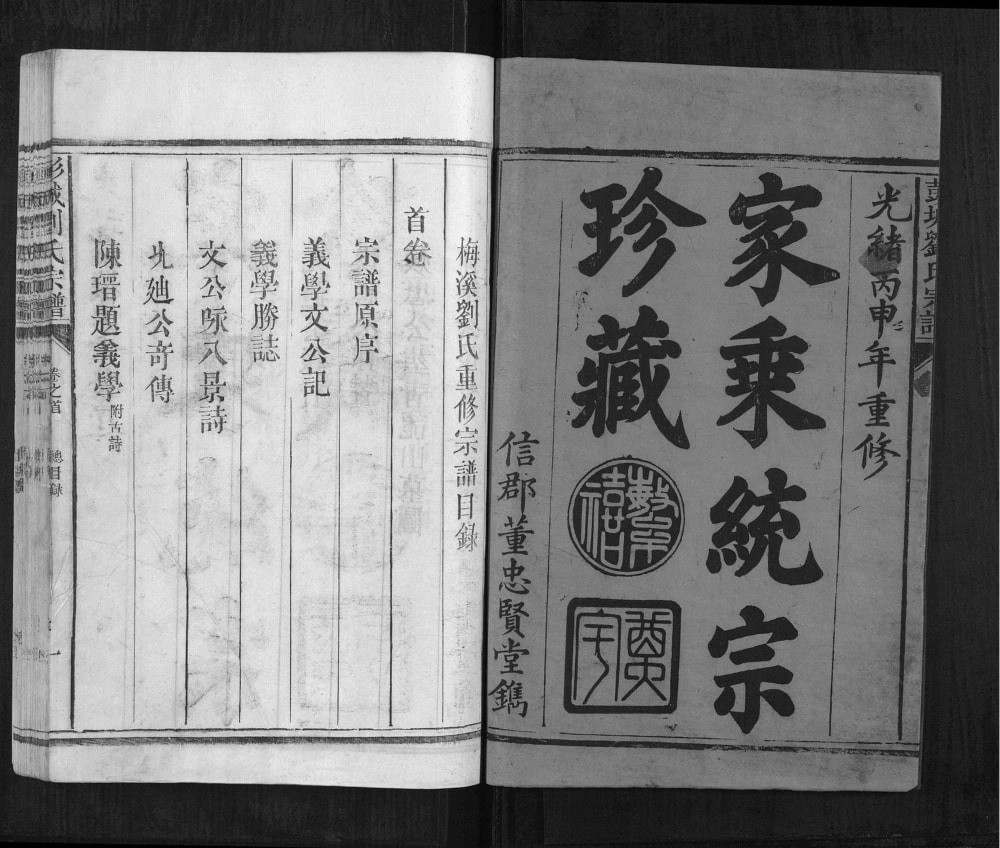 彭城劉氏宗譜
光緒丙申年重修
家乘統宗
珍藏
信郡董忠賢堂鐫
梅溪劉氏重修宗譜目錄
首卷
宗譜原序
義學文公記
義學勝誌
文公咏八景詩
允廸公竒傳
陳瑨題義學附古詩
彭城劉氏宗譜
卷之首
總目録
一